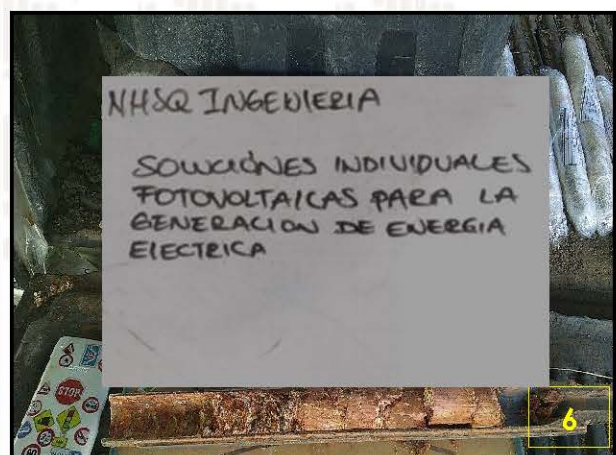 NHSQ INGENIERIA
SOLUCIÓNES INDIVIDUALES
FOTOVOLTAICAS PARA LA
GENERACION DE ENERGIA
ELECTRICA
STOP
6